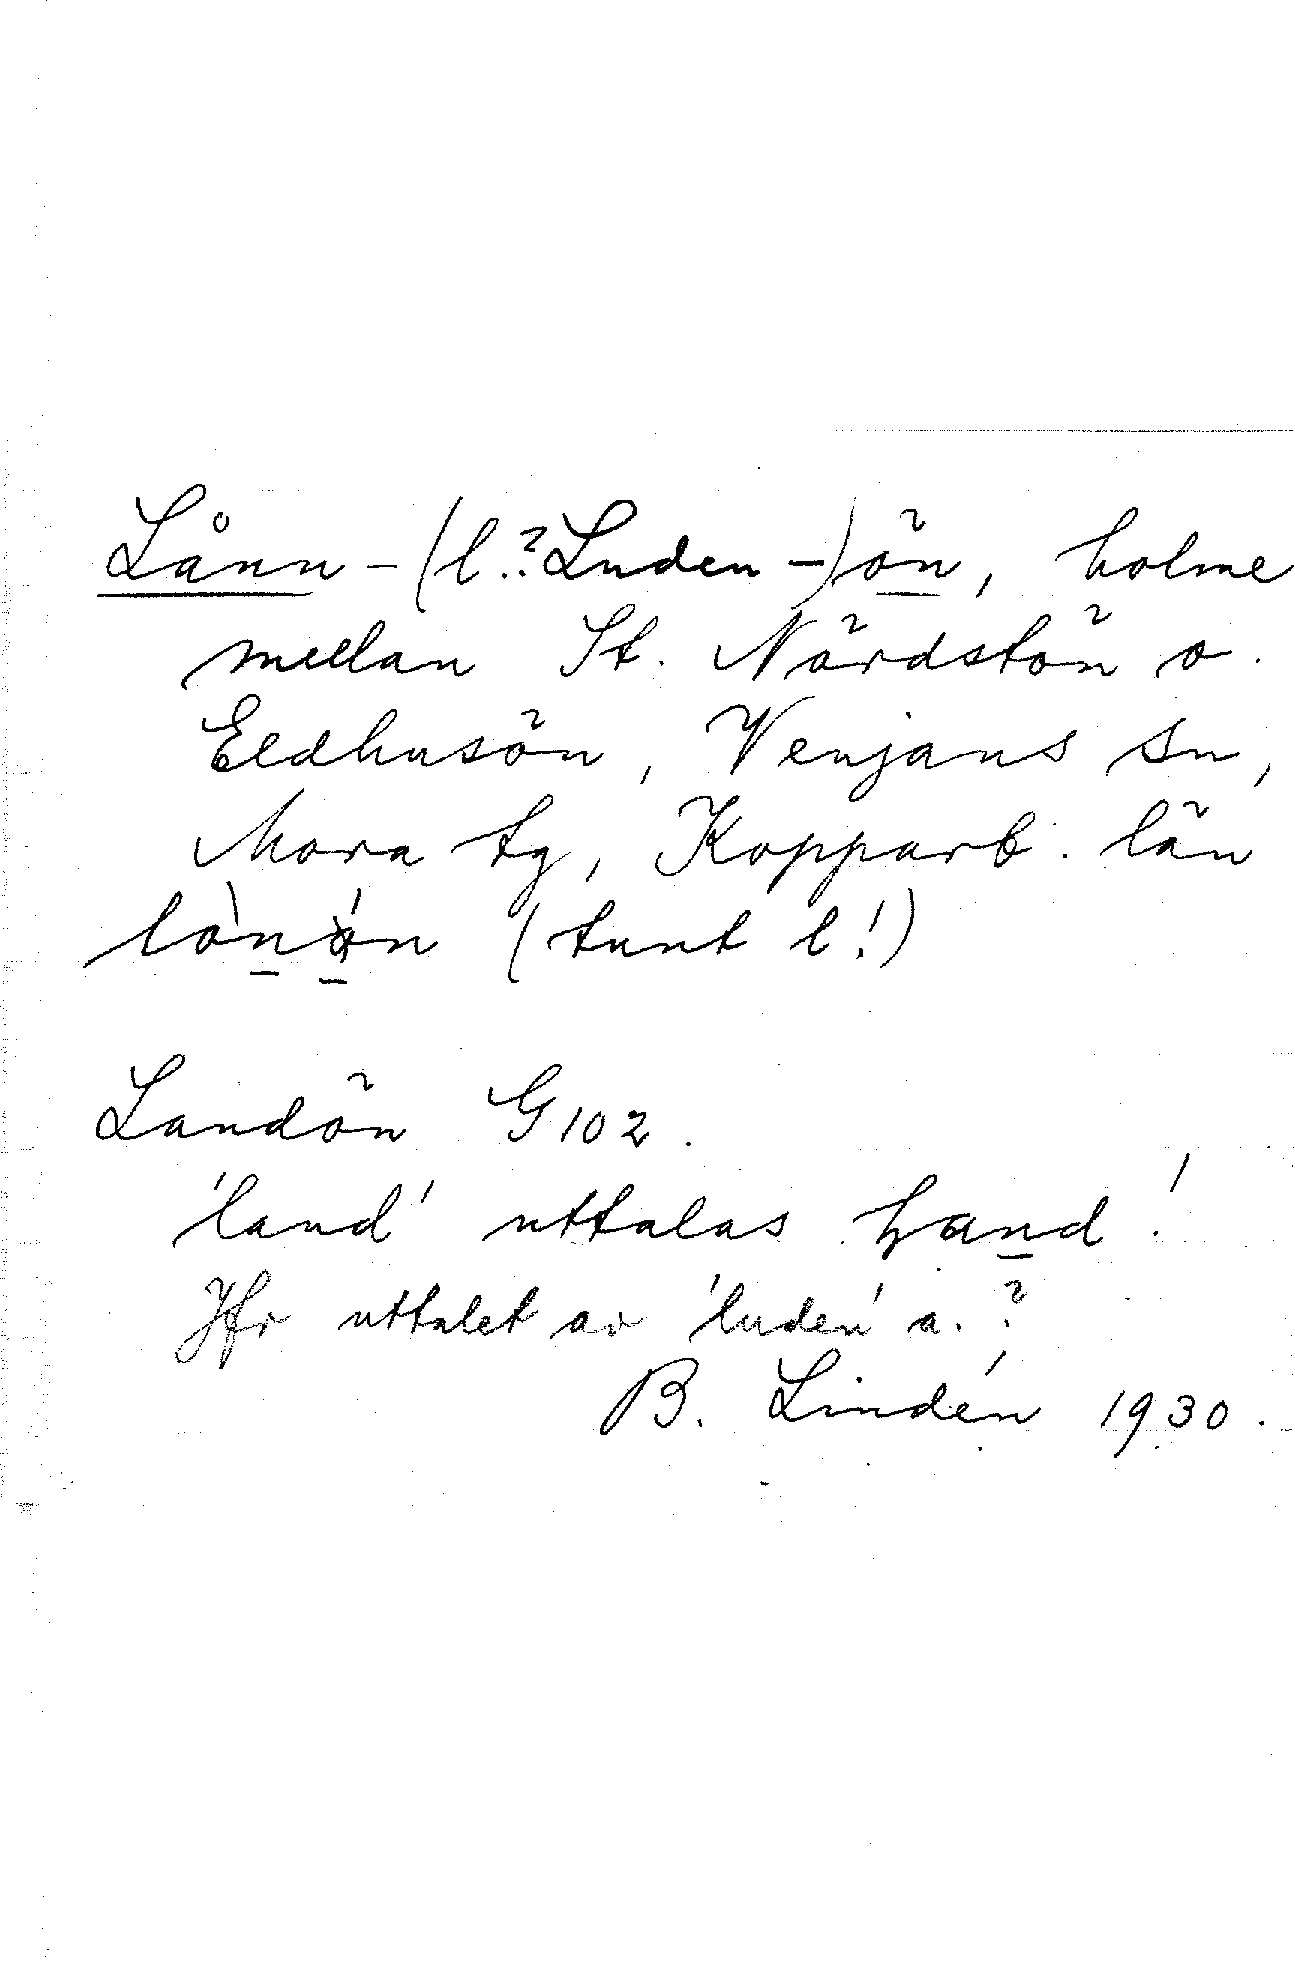 Lånn-(l.? Luden-)ön, holme
mellan St. Närdstön o.
Eldhusön, Venjans sn,
Mora tg, Kopparb. län
(tunt l!)
Landön G102.
'land' uttalas !
Jfr uttalet av 'luden' a.?
B. Lindén 1930.